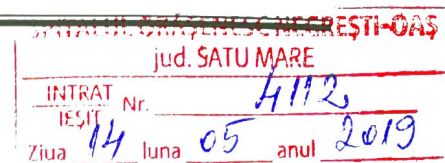 SPITALUL ORĂȘENESC NEGREȘTI-OAȘ
jud. SATU MARE
INTRAT
IEȘIT Nr. 4112
Ziua 14 luna 05 anul 2019